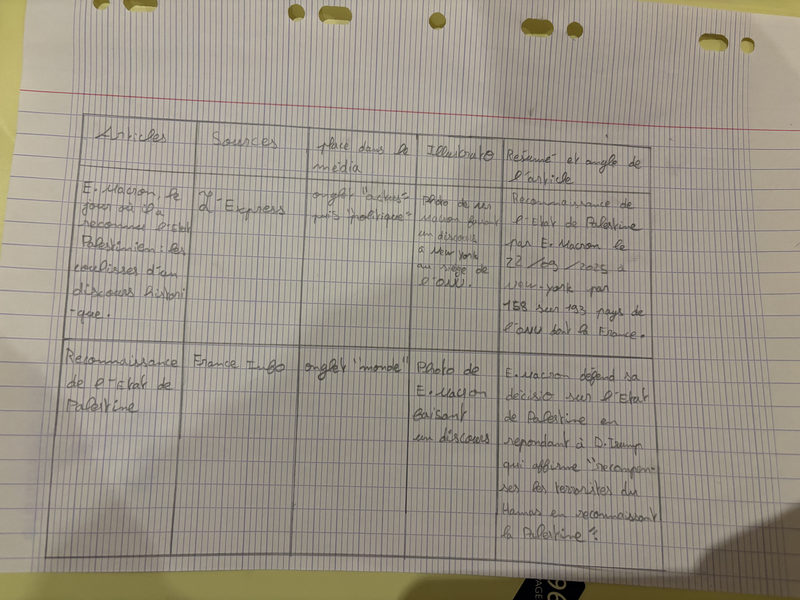 Articles
Sources
place dans le
média
Illustrato
Résumé et angle de
l'article
E. Macron, le
jour où il a
reconnu l'Etat
Palestinien : les
coulisses d'un
discours histori
-que.
L'Express
onglet "actus"
puis "politique"
photo de
Macron faisant
un discours
à New York
au siège de
l'ONU.
Reconnaissance de
l'Etat de Palestine
par E. Macron le
22/09/2025 à
New-York par
158 sur 193 pays de
l'ONU dont la France.
Reconnaissance
de l'Etat de
Palestine
France Info
onglet "monde"
Photo de
E. Macron
faisant
un discours
E. Macron défend sa
décisio sur l'Etat
de Palestine en
repondant à D. Trump
qui affirme "recompen-
ses les terroristes du
Hamas en reconnaissant
la Palestine".
96
AGE